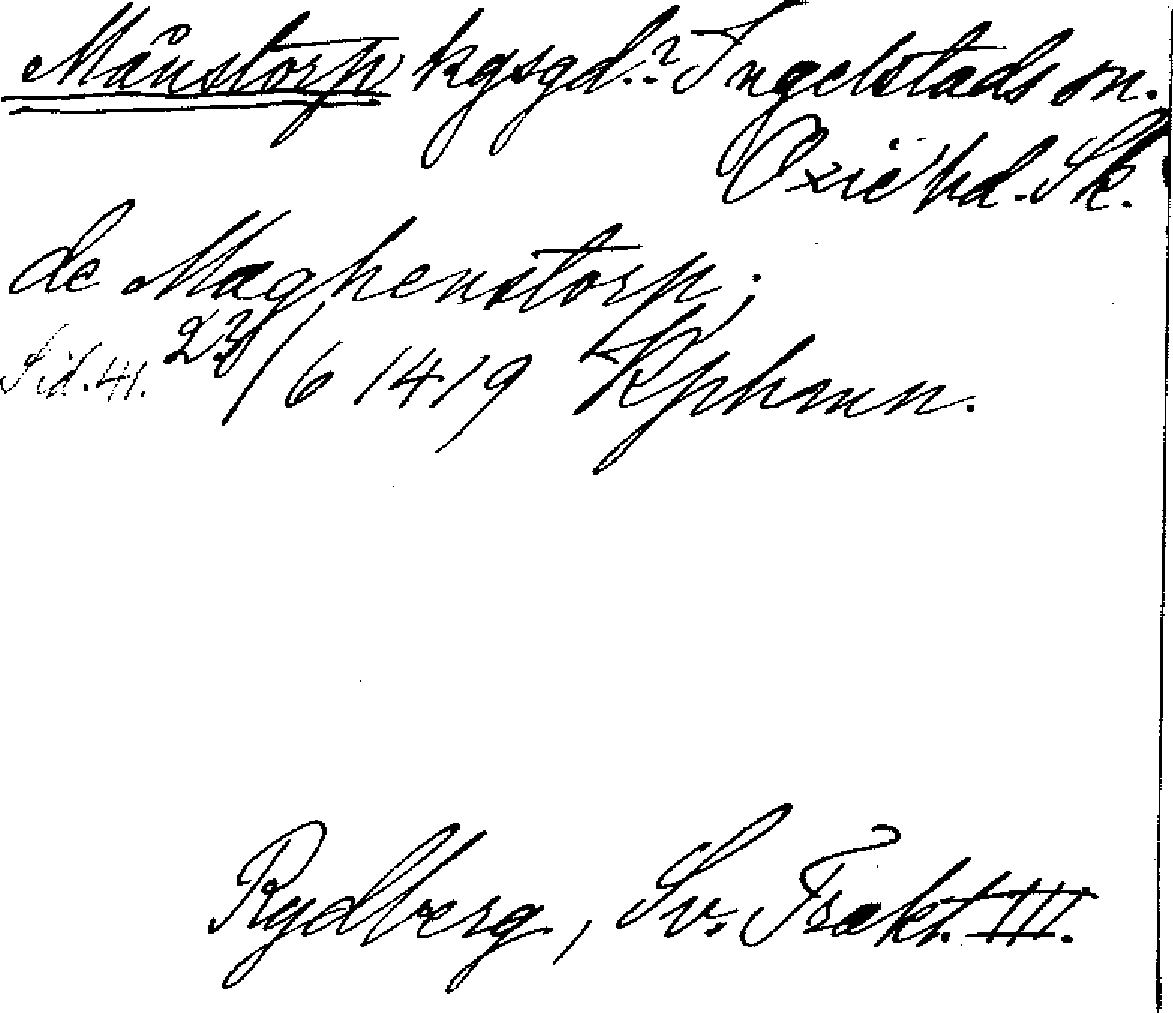 Månstorp kgsgd.? Ingelstads sn.
Oxie hd. Sk.
de Maghenstorp;
Sid. 41. 23/6 1419 Kphamn.
Rydberg, Sv. Trakt. III.